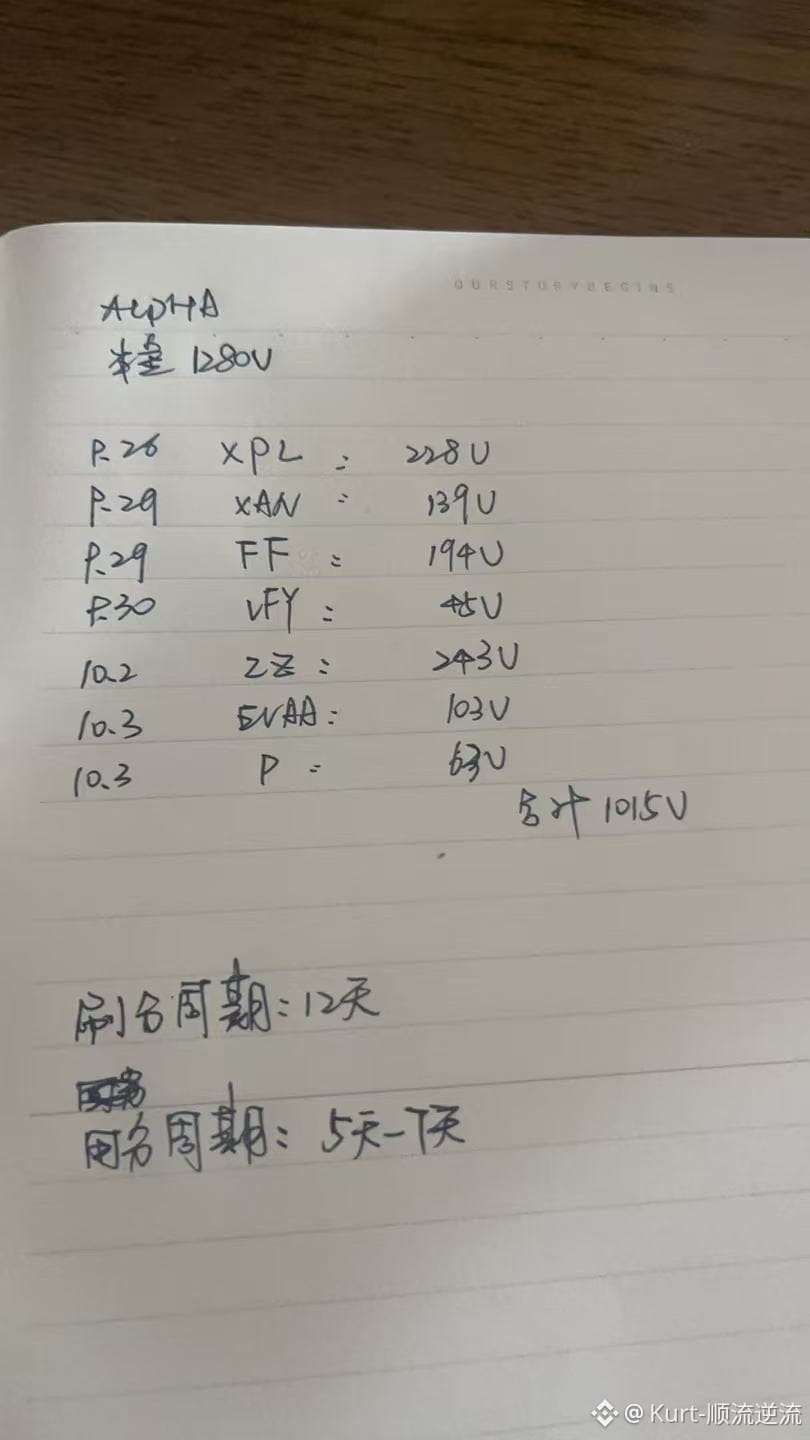 OURSTORYBEGINS
ALPHA
本金 1280U
9.26 XPL : 228U
9.29 XAN : 139U
9.29 FF : 194U
9.30 VFY : 45U
10.2 ZZ : 243U
10.3 EVAA : 103U
10.3 P : 63U
合计 1015U
刷分周期：12天
用分周期：5天-7天
@ Kurt-顺流逆流